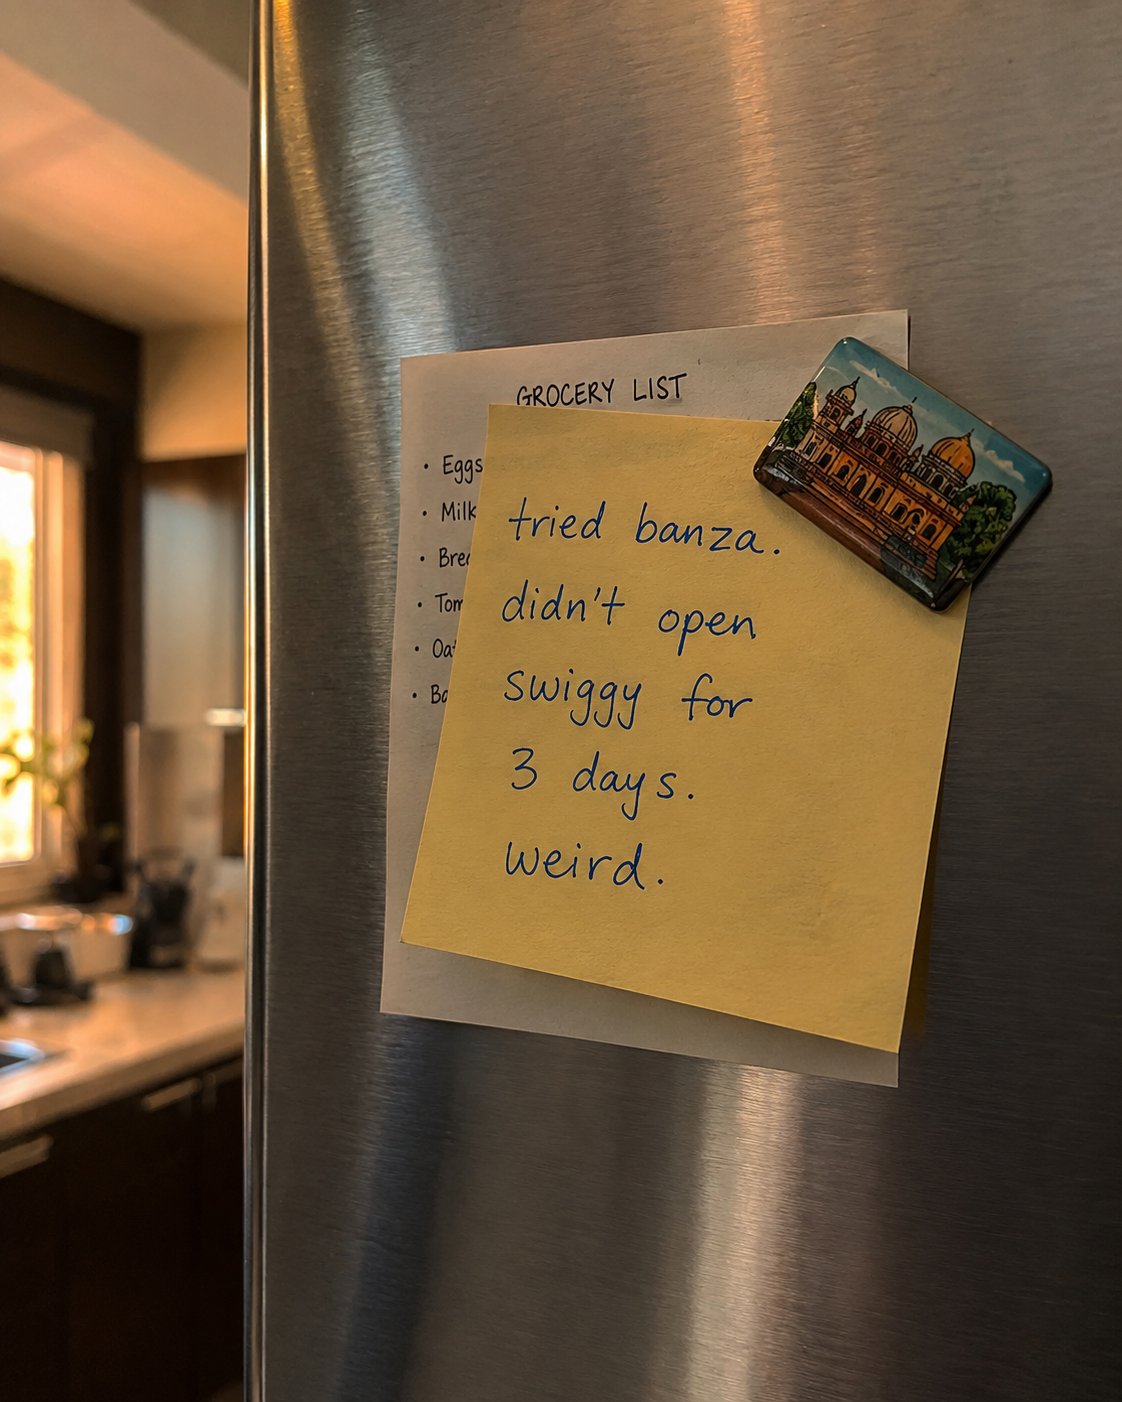 GROCERY LIST
• Eggs
• Milk
tried banza.
didn't open
swiggy for
3 days.
weird.